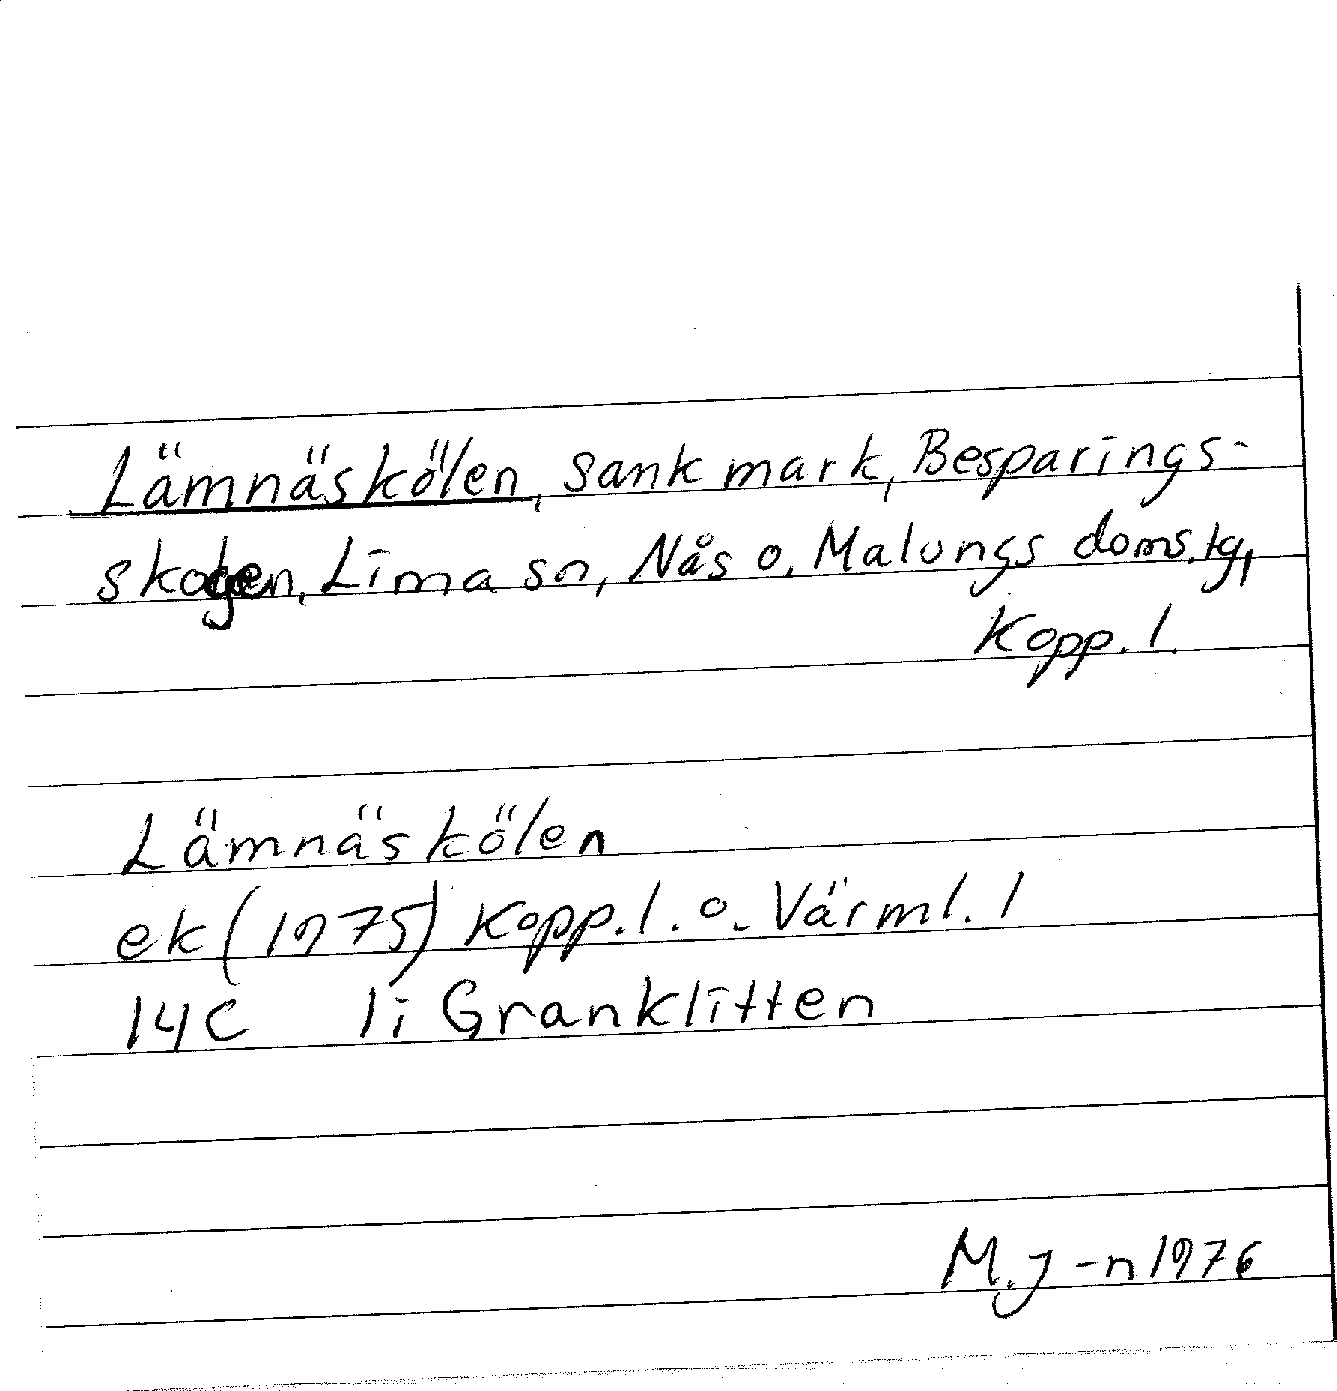 Lämnäskölen, sank mark, Besparings-
skogen, Lima sn, Nås o. Malungs doms.tg,
Kopp. l.
Lämnäskölen
ek (1975) Kopp. l. o. Värml. l
14C 1i Granklitten
M. J-n 1976